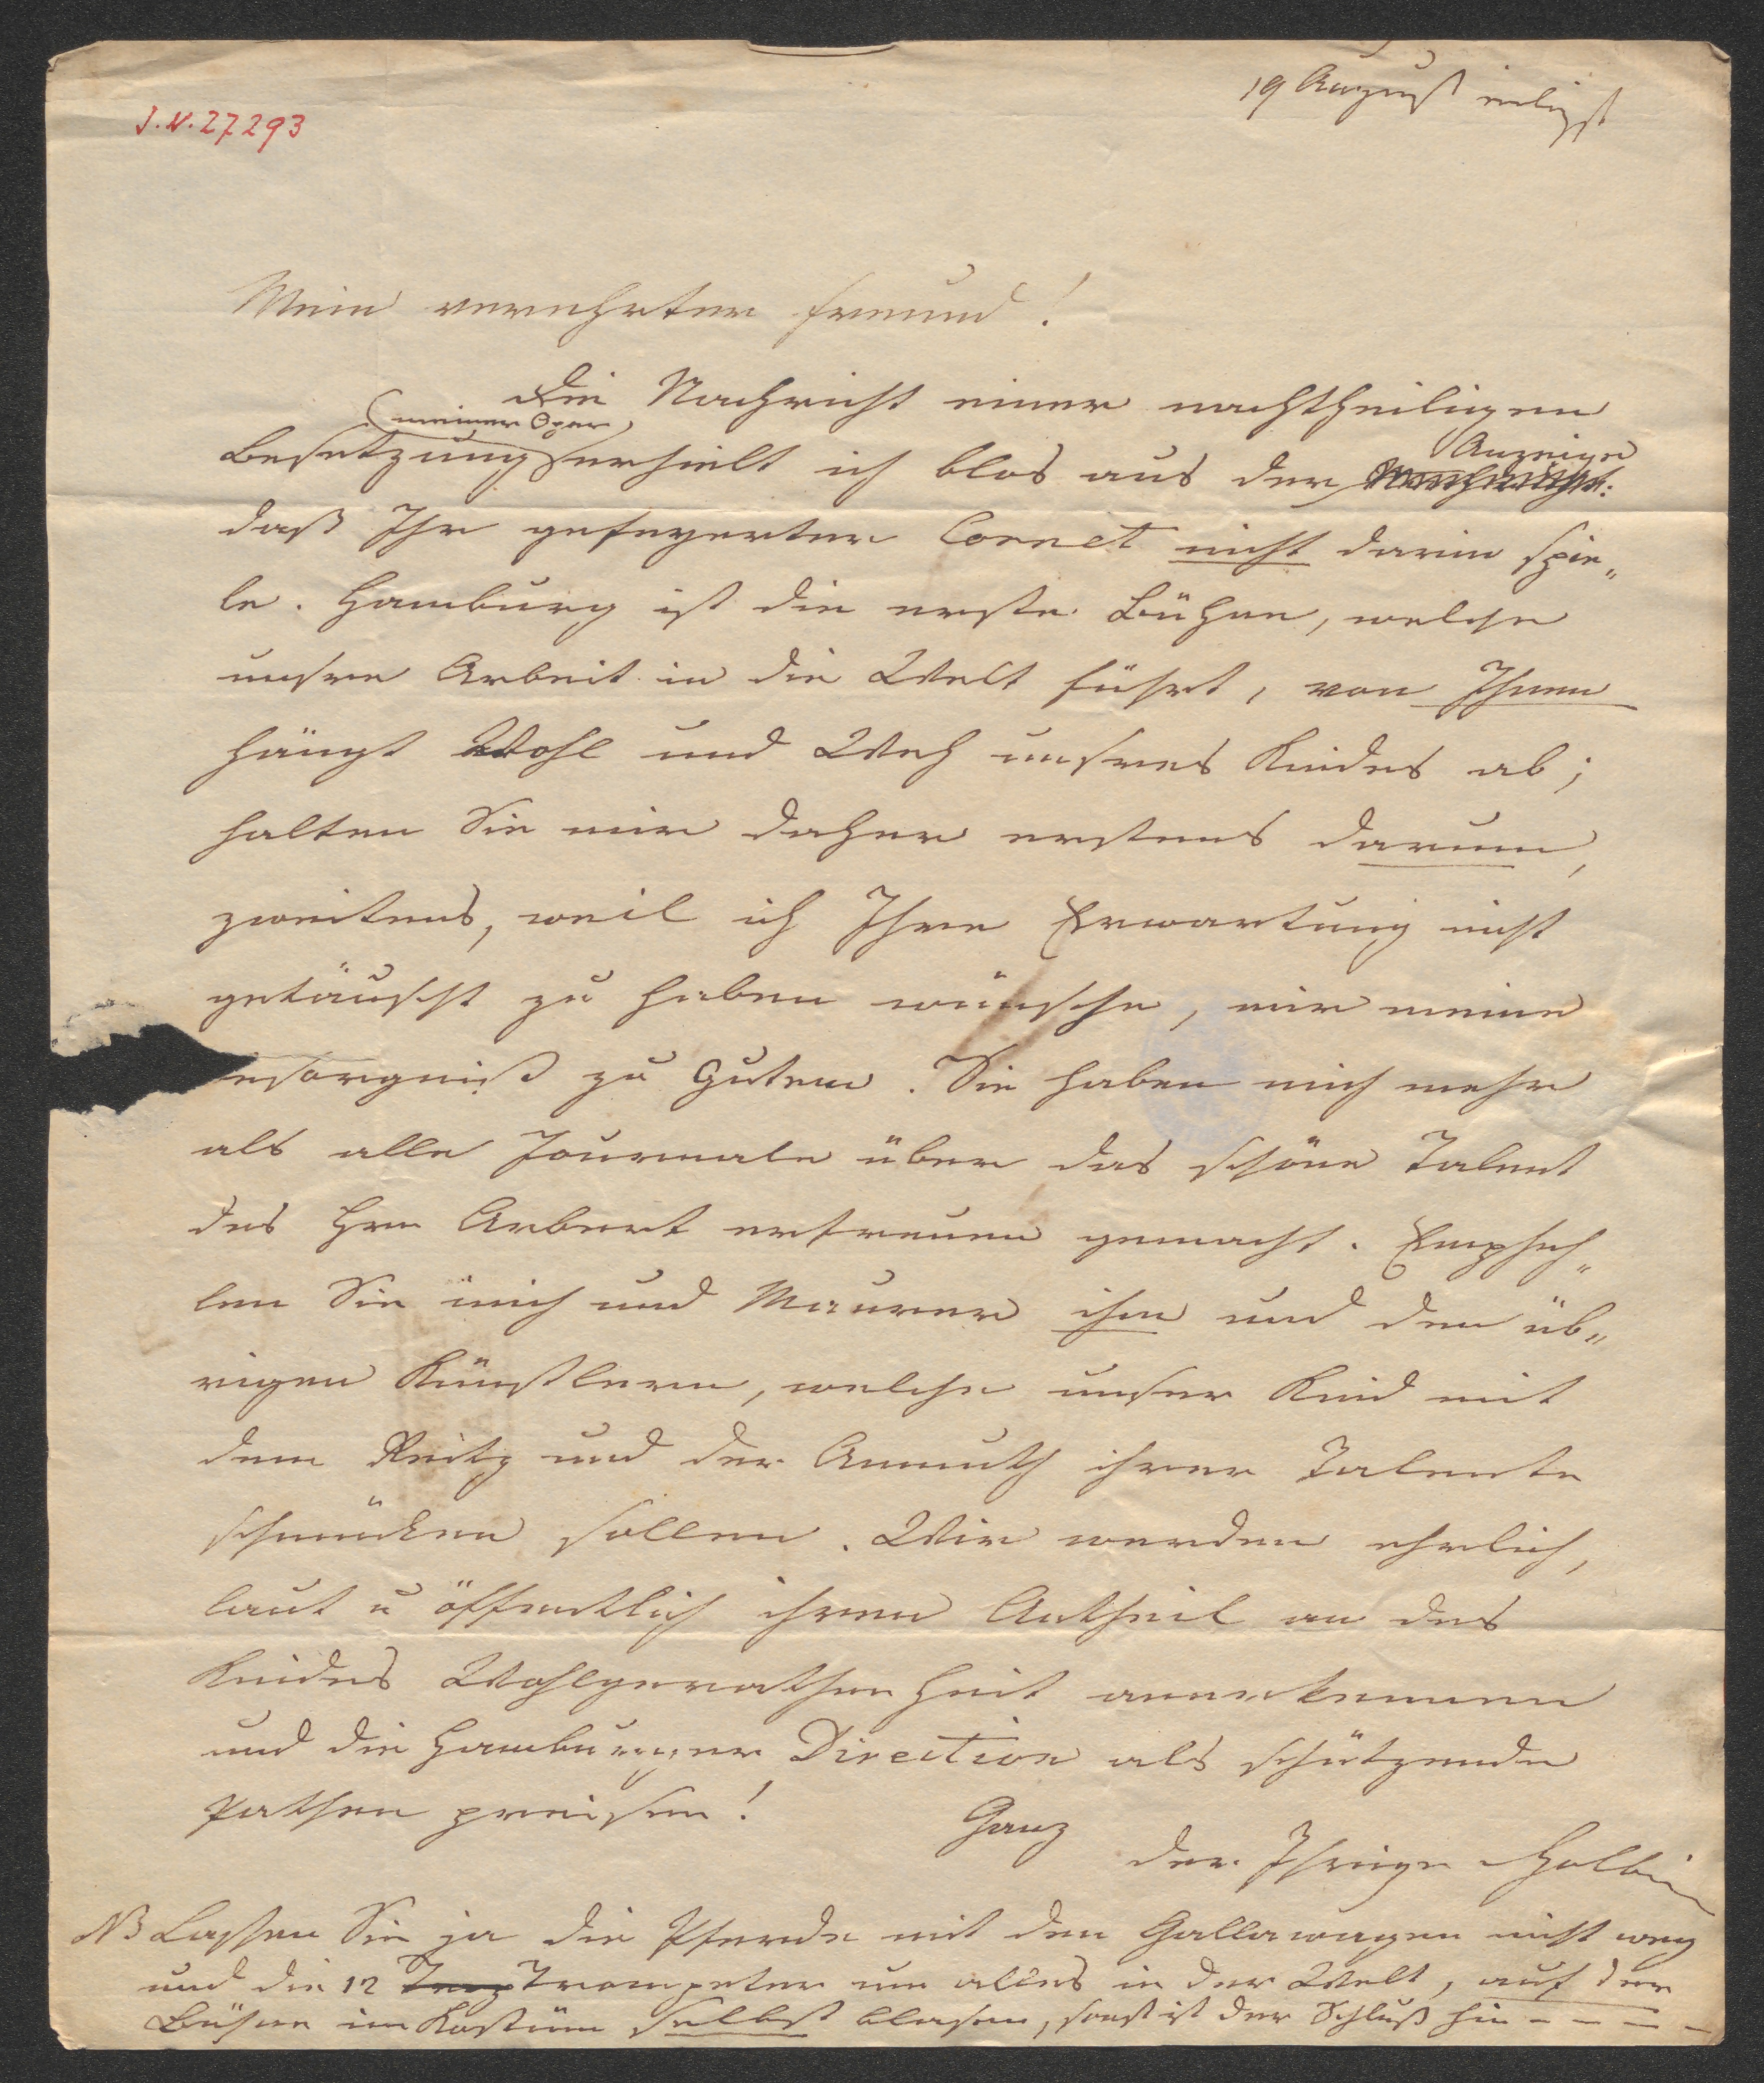 19 August eiligst
J.N. 27293
Mein verehrter Freund!
Die Nachricht einer nachtheiligen
meiner Oper
Besetzung erhielt ich blos aus der
Anzeige
daß Ihr gefeyerter Cornet nicht darin spie„
le. Hamburg ist die erste Bühne, welche
unsre Arbeit in die Welt führt, von Ihnen
hängt Wohl und Weh unsres Kindes ab;
halten Sie mir daher erstens darum,
zweitens, weil ich Ihre Erwartung nicht
getäuscht zu haben wünsche, mir meine
esorgniß zu Gutem. Sie haben mich mehr
als alle Journale über das schöne Talent
des Hrn Arbert erfreuen gemacht. Empfeh„
len Sie mich und Maurer ihm und den üb„
rigen Künstlern, welche unser Kind mit
dem Reitz und der Anmuth ihrer Talente
schmücken sollen. Wir werden ehrlich,
laut u öffentlich ihren Antheil an des
Kindes Wohlgerathenheit anerkennen
und die Hamburger Direction als schützende
Pathen preisen!
Ganz
der Ihrige Holbein
NB Lassen Sie ja die Pferde mit den Gallawagen nicht weg
und die 12 Trompeter um alles in der Welt, auf der
Bühne im Kostüm selbst blasen, sonst ist der Schluß hin - - - -